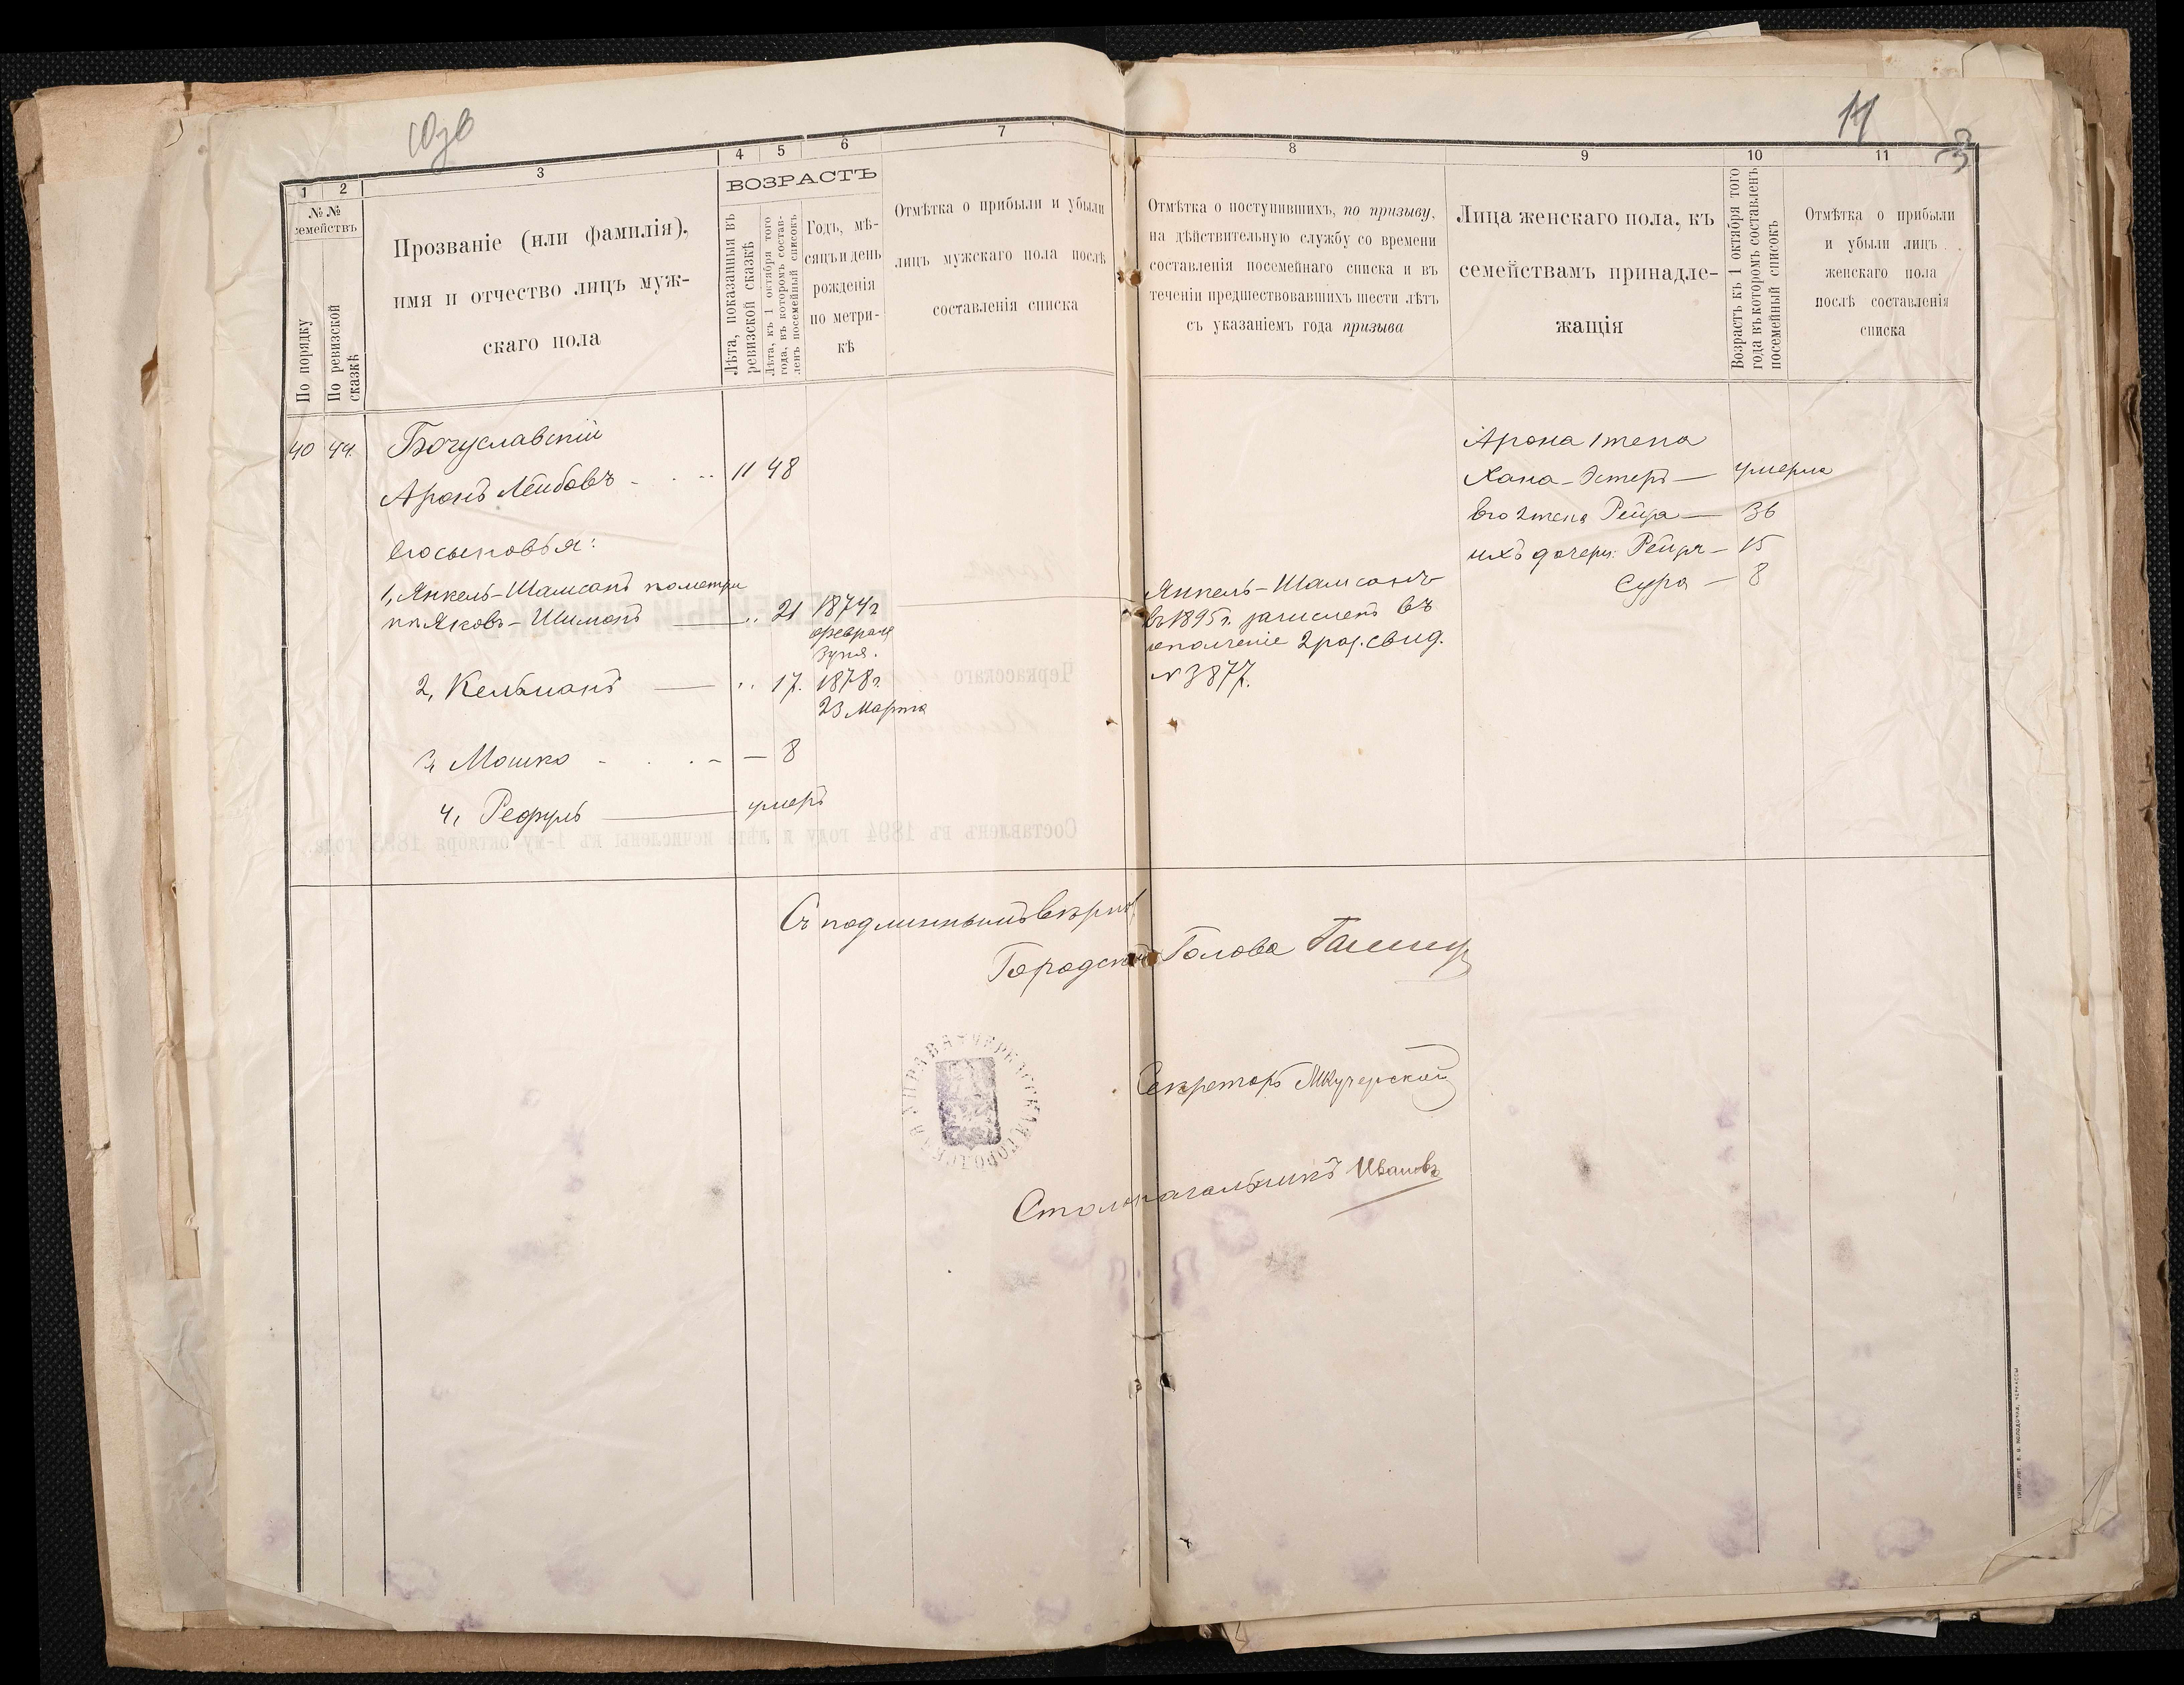 14
3
1
2
3
4
5
6
7
8
9
10
11
№ №
семействъ
По порядку
По ревизской
сказкѣ
Прозваніе (или фамилія),
имя и отчество лицъ муж-
скаго пола
ВОЗРАСТЪ
Лѣта, показанныя въ
ревизской сказкѣ
Лѣта, къ 1 октября того
года, въ которомъ состав-
ленъ посемейный списокъ
Годъ, мѣ-
сяцъ и день
рожденія
по метри-
кѣ
Отмѣтка о прибыли и убыли
лицъ мужскаго пола послѣ
составленія списка
Отмѣтка о поступившихъ, по призыву,
на дѣйствительную службу со времени
составленія посемейнаго списка и въ
теченіи предшествовавшихъ шести лѣтъ
съ указаніемъ года призыва
Лица женскаго пола, къ
семействамъ принадле-
жащія
Возрастъ къ 1 октября того
года въ которомъ составленъ
посемейный списокъ
Отмѣтка о прибыли
и убыли лицъ
женскаго пола
послѣ составленія
списка
40 44. Богуславскій
Аронъ Лейбовъ 11 48
Его сыновья:
1, Янкель-Шамсонъ по метри
Яковъ-Шимонъ 21 1874 г
февраля
3 дня.
2, Кельманъ 17. 1878 г.
23 Марта
3, Мошко — 8
4, Рефуль умеръ
Янкель-Шамсонъ
въ 1895 г. зачисленъ въ
ополченіе 2 раз. свид.
№ 3877.
Арона 1 жена
Хана-Эстеръ — умерла
Его 2 жена Рейза — 36
ихъ дочери: — 15
Сура — 8
Съ подлиннымъ вѣрно
Городской Голова
Секретарь
Столоначальникъ Ивановъ
ЧЕРКАССКАЯ ГОРОДСКАЯ УПРАВА